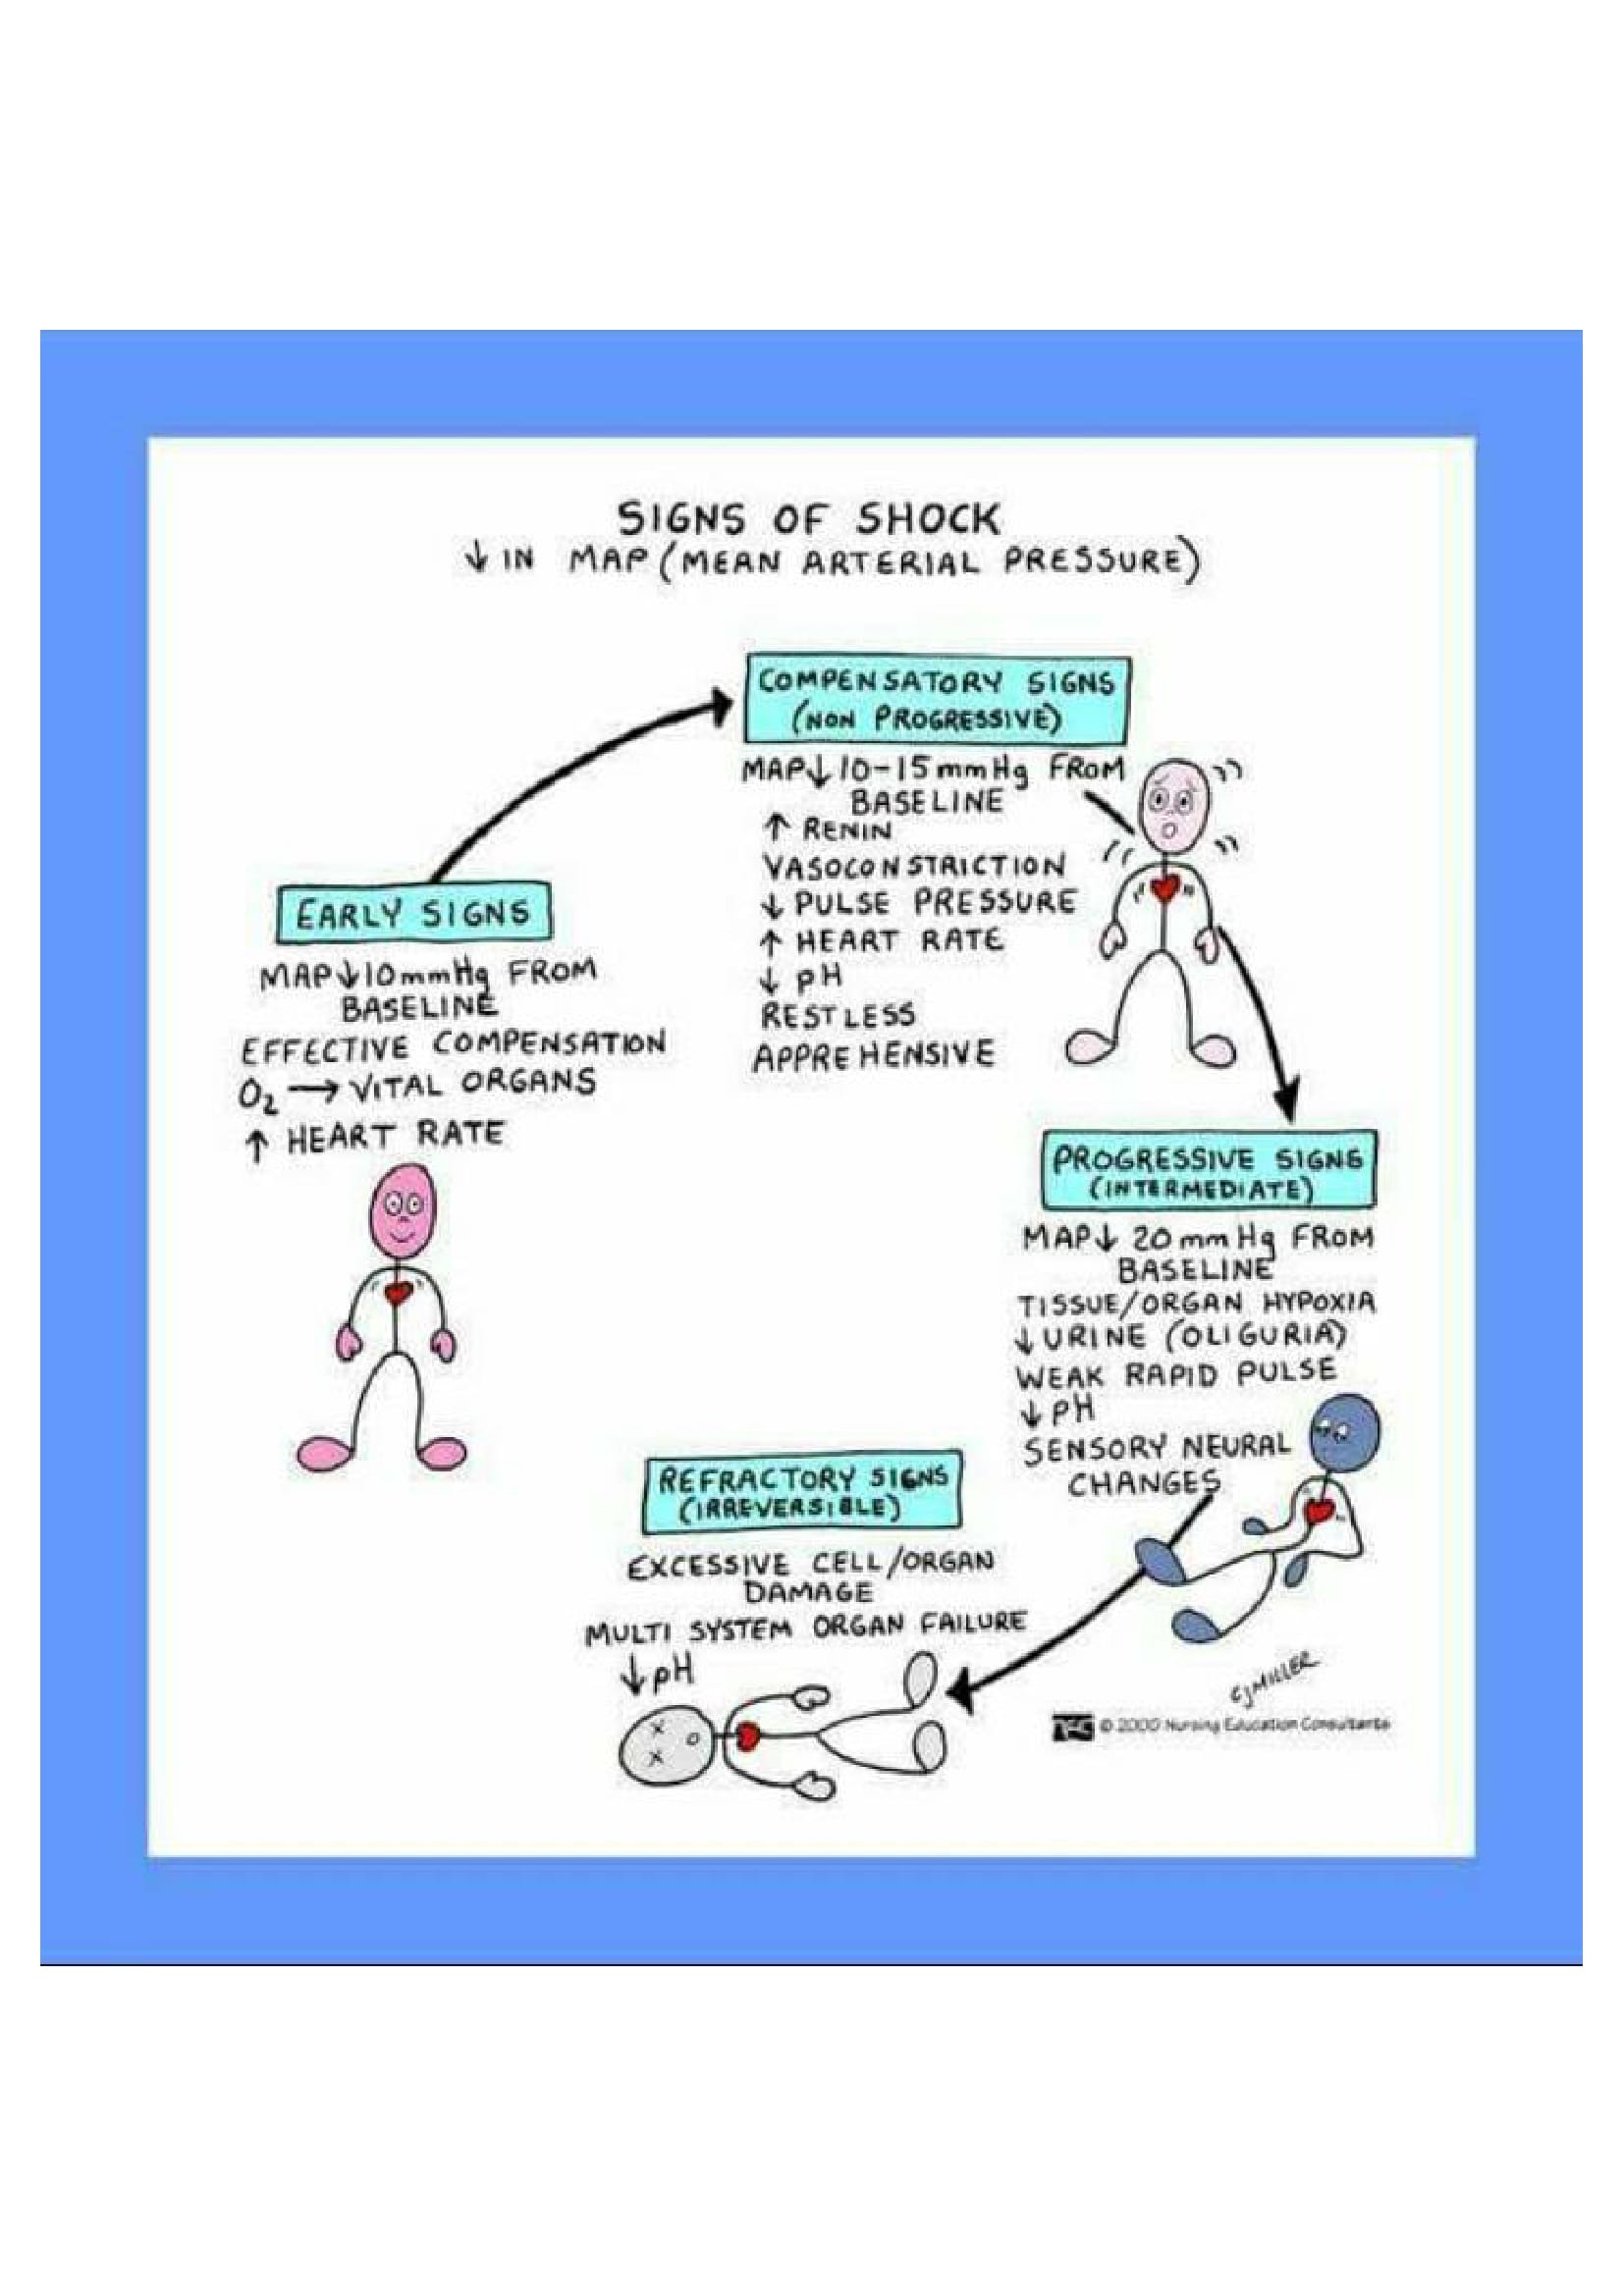 SIGNS OF SHOCK
↓ IN MAP (MEAN ARTERIAL PRESSURE)
EARLY SIGNS
MAP↓10mmHg FROM
BASELINE
EFFECTIVE COMPENSATION
O₂ → VITAL ORGANS
↑ HEART RATE
COMPENSATORY SIGNS
(NON PROGRESSIVE)
MAP↓10-15mmHg FROM
BASELINE
↑ RENIN
VASOCONSTRICTION
↓ PULSE PRESSURE
↑ HEART RATE
↓ pH
RESTLESS
APPREHENSIVE
PROGRESSIVE SIGNS
(INTERMEDIATE)
MAP↓ 20mmHg FROM
BASELINE
TISSUE/ORGAN HYPOXIA
↓ URINE (OLIGURIA)
WEAK RAPID PULSE
↓ PH
SENSORY NEURAL
CHANGES
REFRACTORY SIGNS
(IRREVERSIBLE)
EXCESSIVE CELL/ORGAN
DAMAGE
MULTI SYSTEM ORGAN FAILURE
↓ pH
CJMILLER
NEC © 2000 Nursing Education Consultants